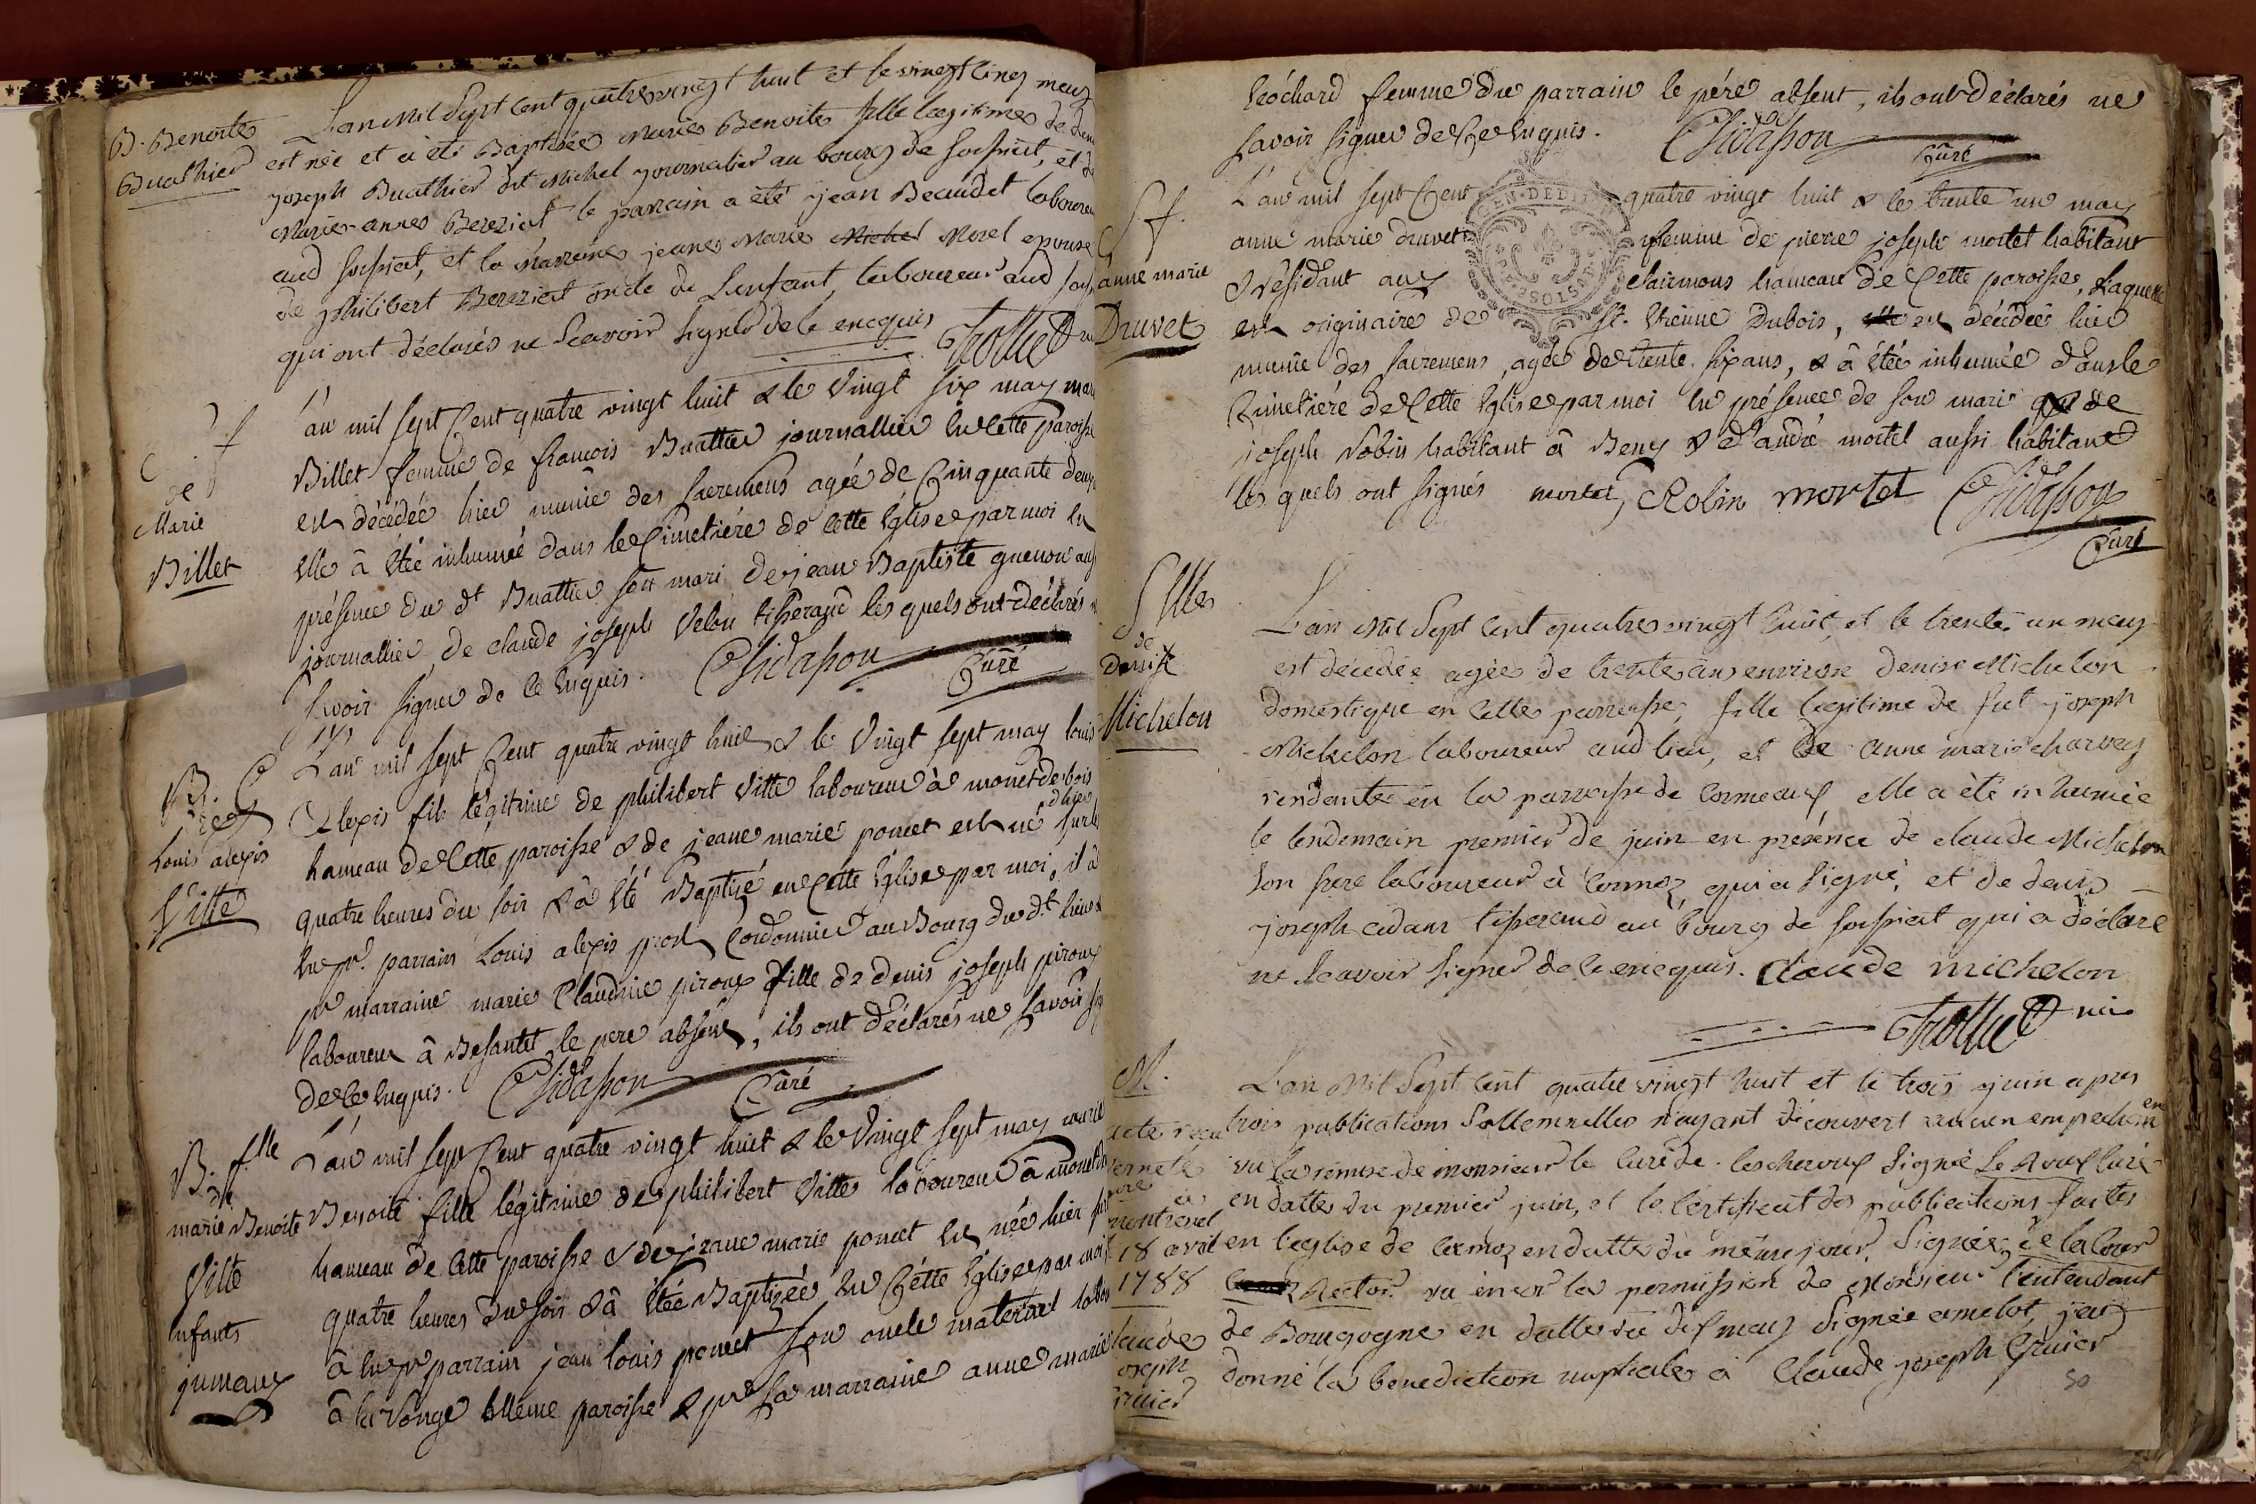 B. Benoite
Buathier
L'an Mil Sept Cent quatre vingt huit et le vingt Cinq may
est née et a été Baptisée Marie Benoite fille legitime de
joseph Buathier dit Michel journalier au bourg de
Marie-anne Bereziat le parrain a été jean Beaudet laboureur
aud et la marraine jeanne Marie Michel Morel epouse
de philibert Bereziat oncle de L'enfant, laboureur aud
qui ont déclarés ne Scavoir Signer de ce enequis Trollier
de
Marie
Billet
L'an mil sept Cent quatre vingt huit & le vingt six may
Billet femme de francois Buattier journallier en cette paroisse
est décédée hier munie des sacremens agée de Cinquante deux
elle â êtée inhumée dans le Cimetiére de cette Eglise par moi en
présence du dt Buattier son mari de jean Baptiste guenon
journallier, de claude joseph Velon tisserand les quels ont déclarés
savoir signer de ce Enquis. Chidasson Curé
B.
Louis alexis
Vitte
L'an mil sept Cent quatre vingt huit & le Vingt sept may louis
Alexis fils légitime de philibert Vitte laboureur â monetdebois
hameau de Cette paroisse & de jeane marie poncet est né d'hier sur les
quatre heures du soir & â été Baptizé en Cette Eglise par moi, il â
eu pr. parrain Louis alexis prost Cordonnier au Bourg du dt. lieu &
pr marraine marie Claudine piroux fille de denis joseph piroux
laboureur â Besantet le pere absent, ils ont déclarés ne savoir
de ce Enquis. Chidasson Curé
B. flle
de
marie Benoite
Vitte
enfants
jumaux
L'an mil sept Cent quatre vingt huit & le Vingt sept may marie
Benoite fille légitime de philibert Vitte laboureur â
hameau de Cette paroisse & de jeane marie poncet est née hier
quatre heures du soir & â êtée Baptizée en Cette Eglise par moi
â eu pr parrain jean louis poncet son oncle maternel
â la Vonge même paroisse & pr Sa marraine anne marie
bréchard femme du parrain le pére absent, ils ont déclarés ne
savoir signer de Ce Enquis. Chidasson
Curé
Sf.
anne marie
Druvet
L'an mil sept Cent quatre vingt huit & le trente un may
anne marie druvet femme de pierre joseph mortel habitant
& résidant aux clairmons hameau de Cette paroisse, Laquelle
est originaire de St. Etienne Dubois, est décédée hier
munie des sacremens, agée de trente six ans, & â êtée inhumée dans le
Cimetiére de Cette Eglise par moi en présence de son mari de
joseph robin habitant â Beny & d'andré mortel aussi habitant
les quels ont signés mortel Robin mortel Chidasson
Curé
de
Denise
Michelon
L'an Mil Sept Cent quatre vingt huit, et le trente un may
est décedée agée de trente ans environ denise Michelon
domestique en cette parroisse, fille legitime de fut joseph
Michelon laboureur aud lieu, et de anne marie charvey
residante en la parroisse de Cormoux elle a été inhumée
le lendemain premier de juin en presence de claude Michelon
Son frere laboureur à Cormoz, qui a Signé, et de denis
joseph cadant tisserand au bourg de qui a déclaré
ne Scavoir Signer de ce enequis. Claude michelon
Trollier vic
M.
montrevel
18 avril
1788
Claude
joseph
L'an Mil Sept Cent quatre vingt huit et le trois juin apres
trois publications Sollemnelles n'ayant decouvert aucun empechem
en
vu la remise de monsieur le Curé de lescheroux Signé Le Roux Curé
en datte du premier juin, et le certificat des publications faites
en l'eglise de Cormoz en datte du même jour Signée de la Cour
Rector vu encor la permission de Monsieur l'intendant
de Bourgogne en datte du dix may Signée amelot, j'ay
donné la benediction nuptiale à Claude joseph Gruier
50